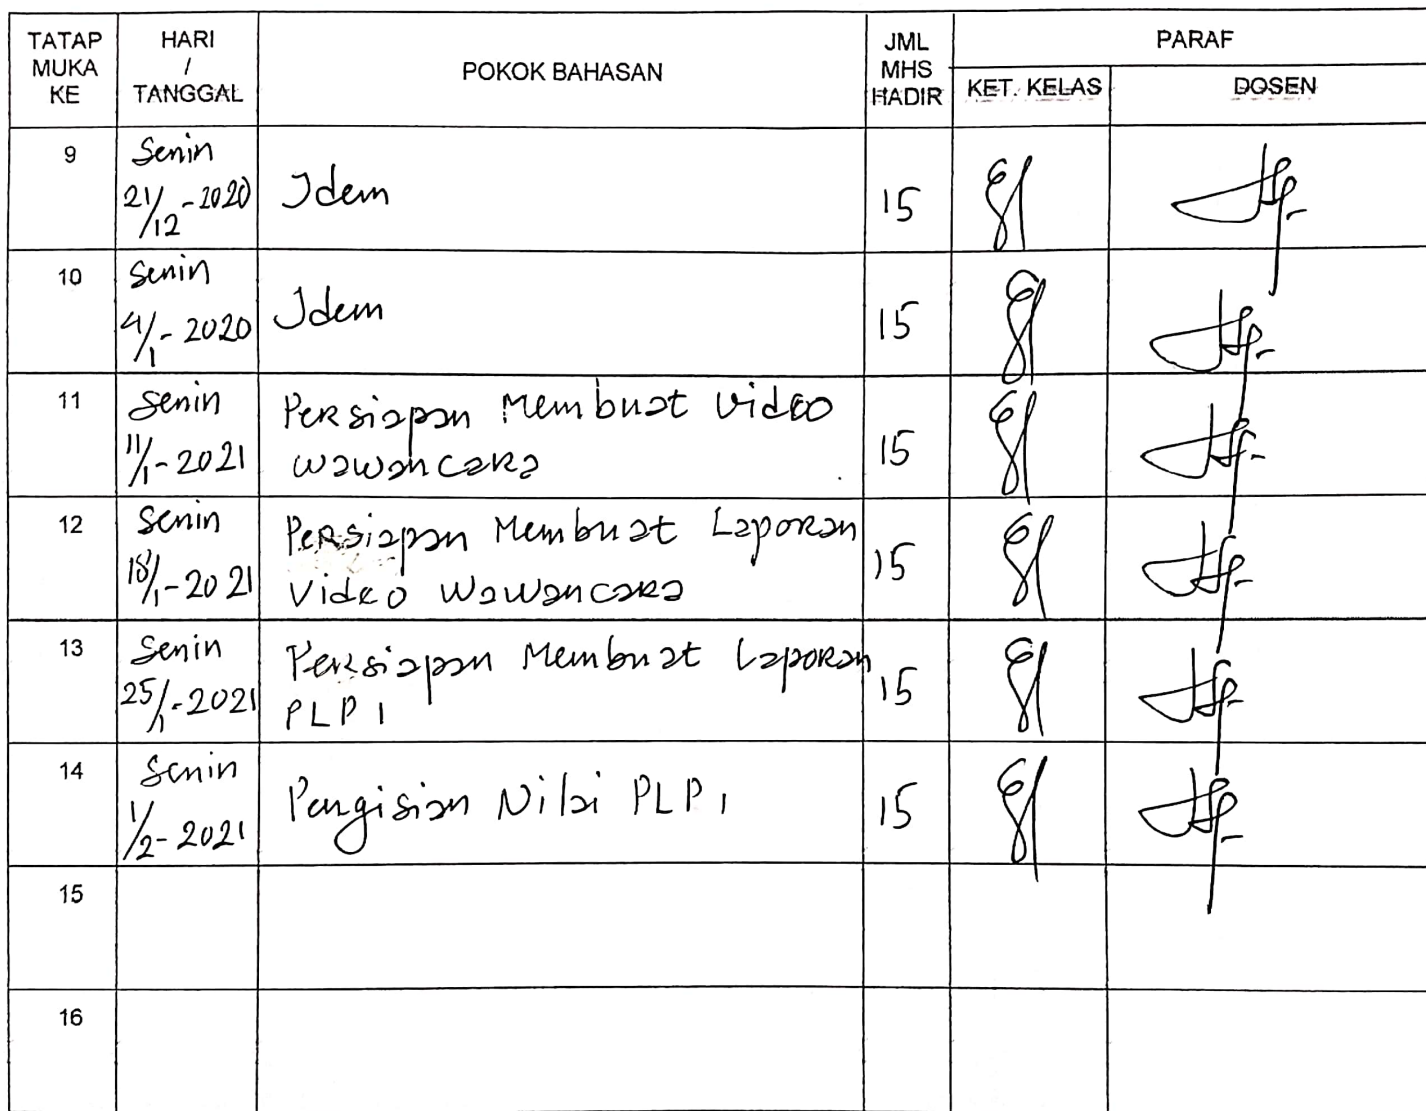 TATAP MUKA KE
HARI / TANGGAL
POKOK BAHASAN
JML MHS HADIR
PARAF
KET. KELAS
DOSEN
9
Senin
21/12 - 2020
Idem
15
10
Senin
4/1 - 2020
Idem
15
11
Senin
11/1 - 2021
Persiapan Membuat Video
Wawancara
15
12
Senin
18/1 - 2021
Persiapan Membuat Laporan
Video Wawancara
15
13
Senin
25/1 - 2021
Persiapan Membuat Laporan
PLP 1
15
14
Senin
1/2 - 2021
Pengisian Nilai PLP 1
15
15
16